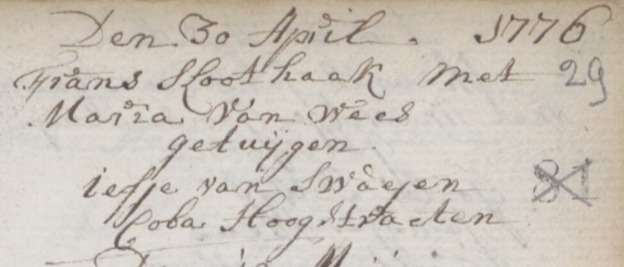 Den 30 April. 1776
Frans Sloothaak met 29
Maria Van Wees
getuijgen
iefje van Swaejen
Coba Hoogstraeten